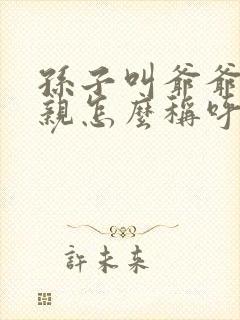 孫子叫爺爺
親怎麼稱呼
許未來